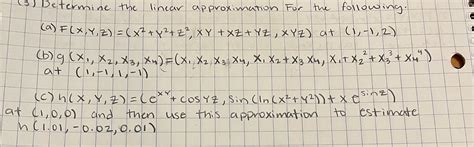 (3) Determine the linear approximation For the following.
(a) F(x,y,z) = (x²+y²+z², xy + xz + yz, xyz) at (1,-1,2)
(b) g(x₁, x₂, x₃, x₄) = (x₁ x₂ x₃ x₄, x₁ x₂ + x₃ x₄, x₁ + x₂² + x₃³ + x₄⁴)
at (1,-1,1,-1)
(c) h(x,y,z) = (e^xy + cos yz, sin(ln(x²+y²)) + x e^sinz)
at (1,0,0) and then use this approximation to estimate
h(1.01, -0.02, 0.01)